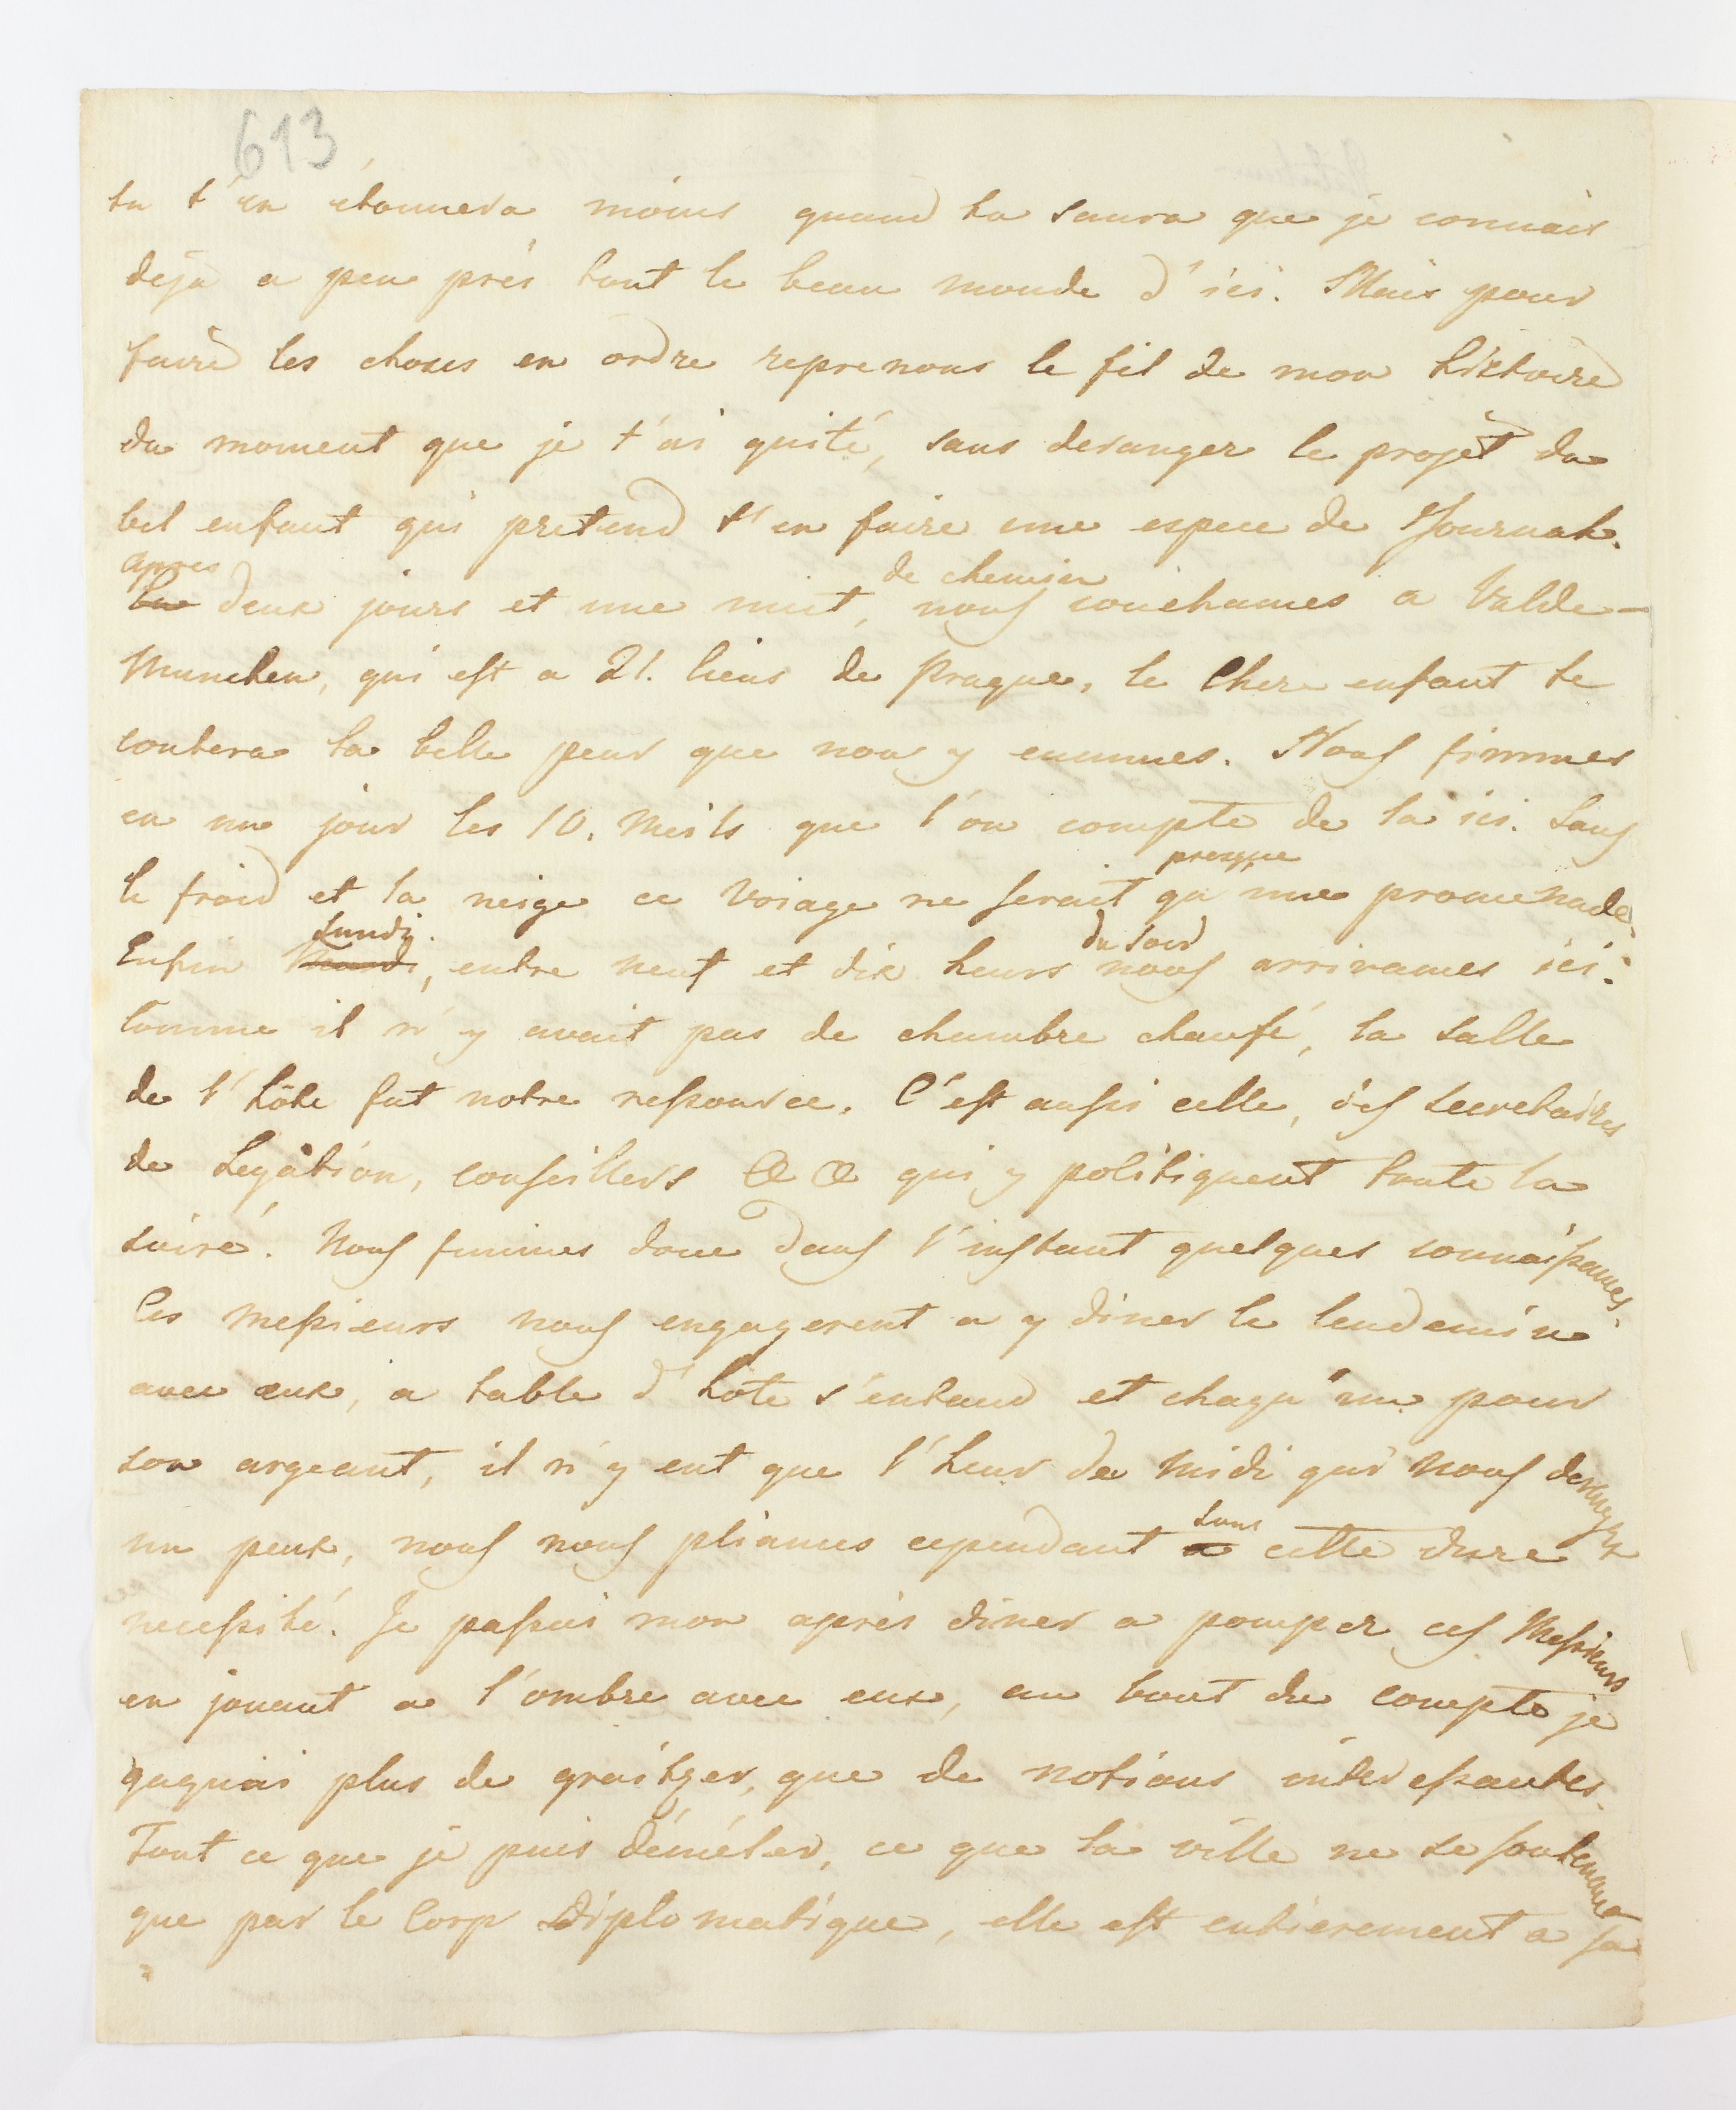 613
tu t'en étonnera moins quand tu saura que je connais
deja a peu prés tout le beau monde d'ici. Mais pour
faire les choses en ordre reprenons le fil de mon histoire
du moment que je t'ai quité, sans deranger le projet du
bel enfant qui pretend t'en faire une espece de Journal.
apres de chemin
deux jours et une nuit, nous couchames a Valde-
Munchen, qui est a 21. lieus de Prague, le Chere enfant te
contera la belle peur que nous y eummes. Nous finimes
en un jour les 10. Meils que l'on compte de la ici. Sans
presque
le froid et la neige ce voiage ne serait qu'une promenade.
lundi. du soir
Enfin Mardi, entre neuf et dix heurs nous arrivames ici.
Comme il n'y avait pas de chambre chaufé, la salle
de l'hôte fut notre ressource. C'est aussi celle, des secretaires
de Legation, conseillers &c &c qui y politiquent toute la
soiré. Nous fumimes donc dans l'instant quelques connaissances.
Ces messieurs nous engagerent a y diner le lendemin
avec eux, a table d'hote s'entand et chaqu'un pour
son argeant, il n'y eut que l'heur de midi qui nous derangea
un peux, nous nous pliames cependant a sous cette dure
necessité. Je passai mon aprés diner a pomper ces Messieurs
en jouant a l'ombre avec eux, au bout du compte je
gagnai plus de graitzer, que de notions interessantes.
Tout ce que je puis déméler, ce que la ville ne se soutennent
que par le Corp Diplomatique, elle est entierement a sa